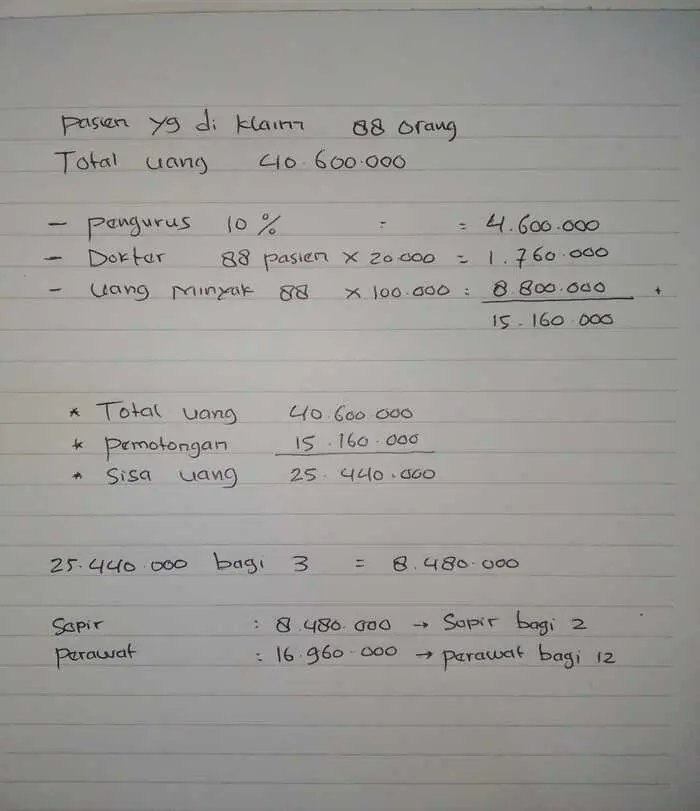 Pasien yg di klaim 88 orang
Total uang 40.600.000
- Pengurus 10% = = 4.600.000
- Dokter 88 pasien x 20.000 = 1.760.000
- Uang Minyak 88 x 100.000 = 8.800.000 +
15.160.000
* Total uang 40.600.000
* Pemotongan 15.160.000
* Sisa uang 25.440.000
25.440.000 bagi 3 = 8.480.000
Sopir : 8.480.000 → Sopir bagi 2
Perawat : 16.960.000 → perawat bagi 12